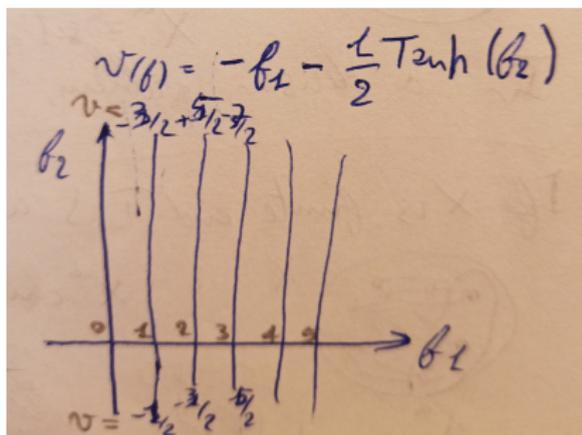 v(β) = -β1 - 1/2 Tanh (β2)
v = -3/2 + 5/2 - 7/2
β2
0 1 2 3 4 5
β1
v = -1/2 -3/2 -5/2